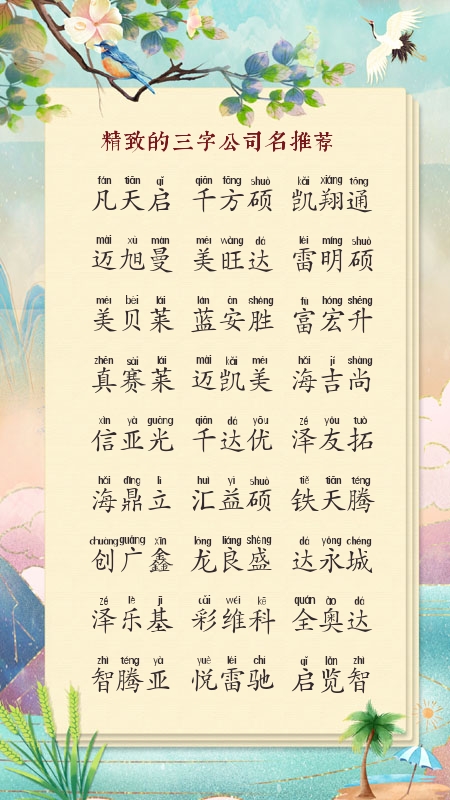 精致的三字公司名推荐
fán tiān qǐ qiān fāng shuò kǎi xiáng tōng
凡天启 千方硕 凯翔通
mài xù màn měi wàng dá léi míng shuò
迈旭曼 美旺达 雷明硕
měi bèi lái lán ān shèng fù hóng shēng
美贝莱 蓝安胜 富宏升
zhēn sài lái mài kǎi měi hǎi jí shàng
真赛莱 迈凯美 海吉尚
xìn yà guāng qiān dá yōu zé yǒu tuò
信亚光 千达优 泽友拓
hǎi dǐng lì huì yì shuò tiě tiān téng
海鼎立 汇益硕 铁天腾
chuàng guǎng xīn lóng liáng shèng dá yǒng chéng
创广鑫 龙良盛 达永城
zé lè jī cǎi wéi kē quán ào dá
泽乐基 彩维科 全奥达
zhì téng yà yuè léi chí qǐ lǎn zhì
智腾亚 悦雷驰 启览智